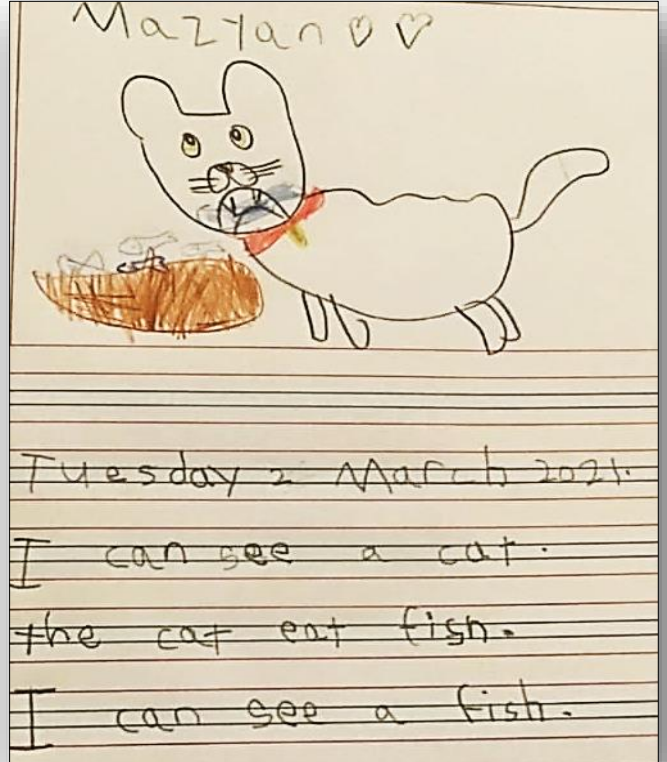 Mazyan ♡ ♡
Tuesday 2 March 2021.
I can see a cat.
the cat eat fish.
I can see a fish.